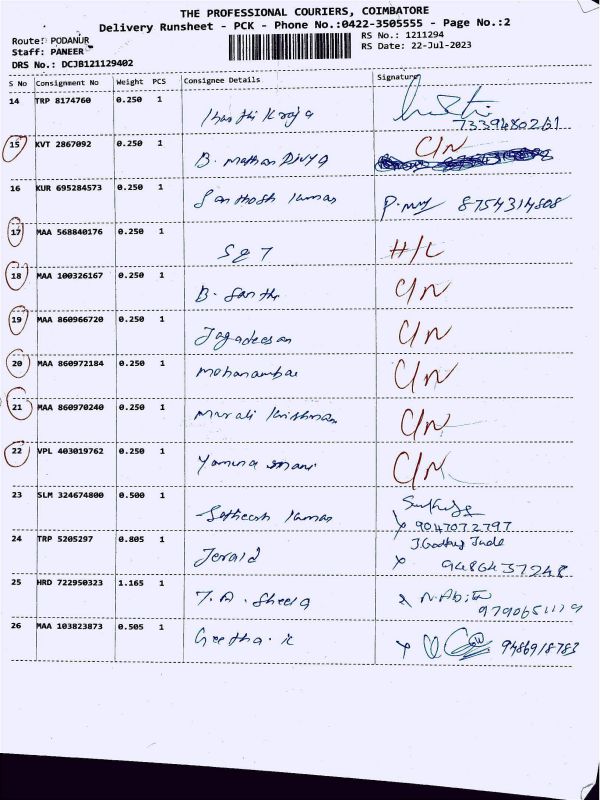 THE PROFESSIONAL COURIERS, COIMBATORE
Delivery Runsheet - PCK - Phone No.:0422-3505555 - Page No.:2
Route: PODANUR
RS No.: 1211294
Staff: PANEER
RS Date: 22-Jul-2023
DRS No.: DCJB121129402
S No Consignment No Weight PCS Consignee Details Signature
14 TRP 8174760 0.250 1
7339480261
15 KVT 2867092 0.250 1 B. Mathan Divya C/N
16 KUR 695284573 0.250 1 Santhosh Kumar 8754314808
17 MAA 568840176 0.250 1 S & T H/C
18 MAA 100326167 0.250 1 B. Santhi C/N
19 MAA 860966720 0.250 1 Jagadeesan C/N
20 MAA 860972184 0.250 1 Mohanambal C/N
21 MAA 860970240 0.250 1 Murali Krishnan C/N
22 VPL 403019762 0.250 1 Yamuna mani C/N
23 SLM 324674800 0.500 1 Satheesh Kumar
9047072797
24 TRP 5205297 0.805 1 Jerald J.Godfrey Jude
9486437248
25 HRD 722950323 1.165 1 T. A. Sheela N.Abitha
26 MAA 103823873 0.505 1 Geetha. K 9486918783